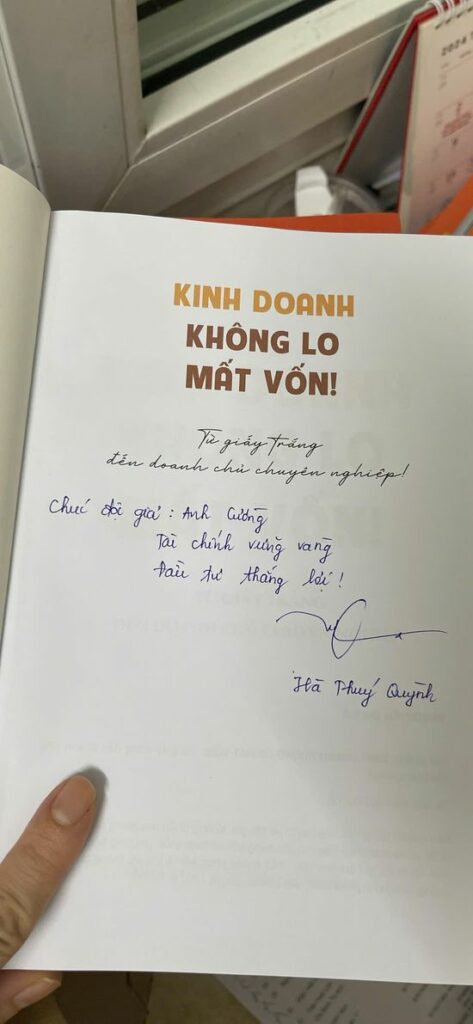 2024
KINH DOANH
KHÔNG LO
MẤT VỐN!
Từ giấy trắng
đến doanh chủ chuyên nghiệp!
Chúc độc giả : Anh Cường
Tài chính vững vàng
Đầu tư thắng lợi !
Hà Thuý Quỳnh